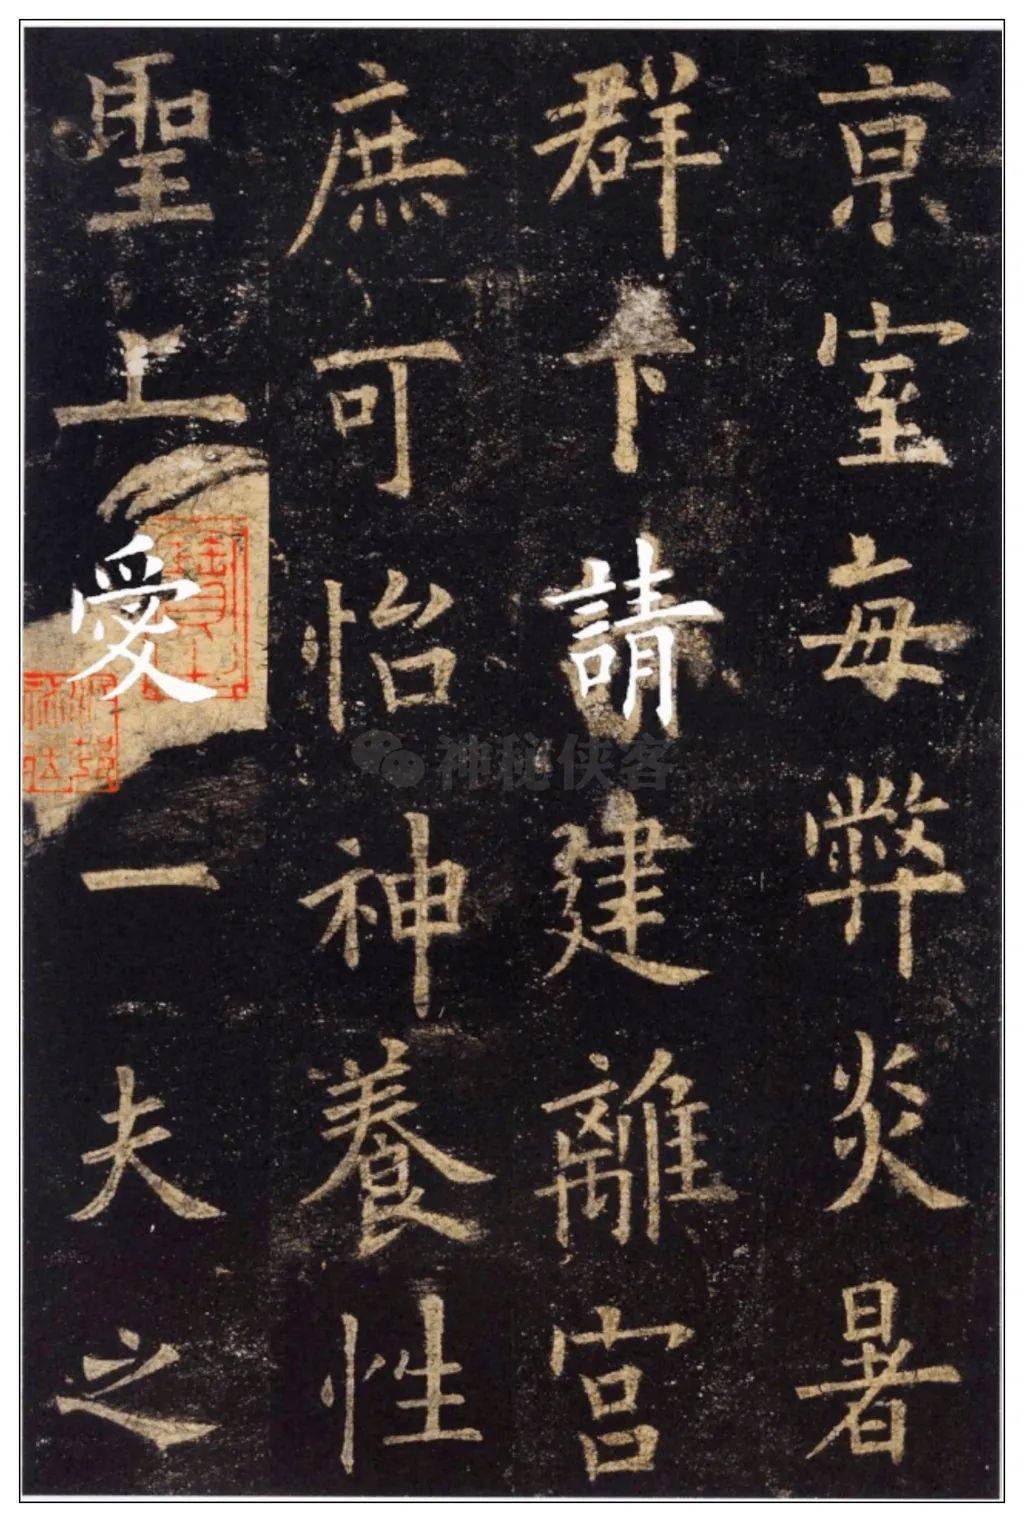 京室每弊炎暑
群下請建離宮
庶可怡神養性
聖上愛一夫之
神秘侠客